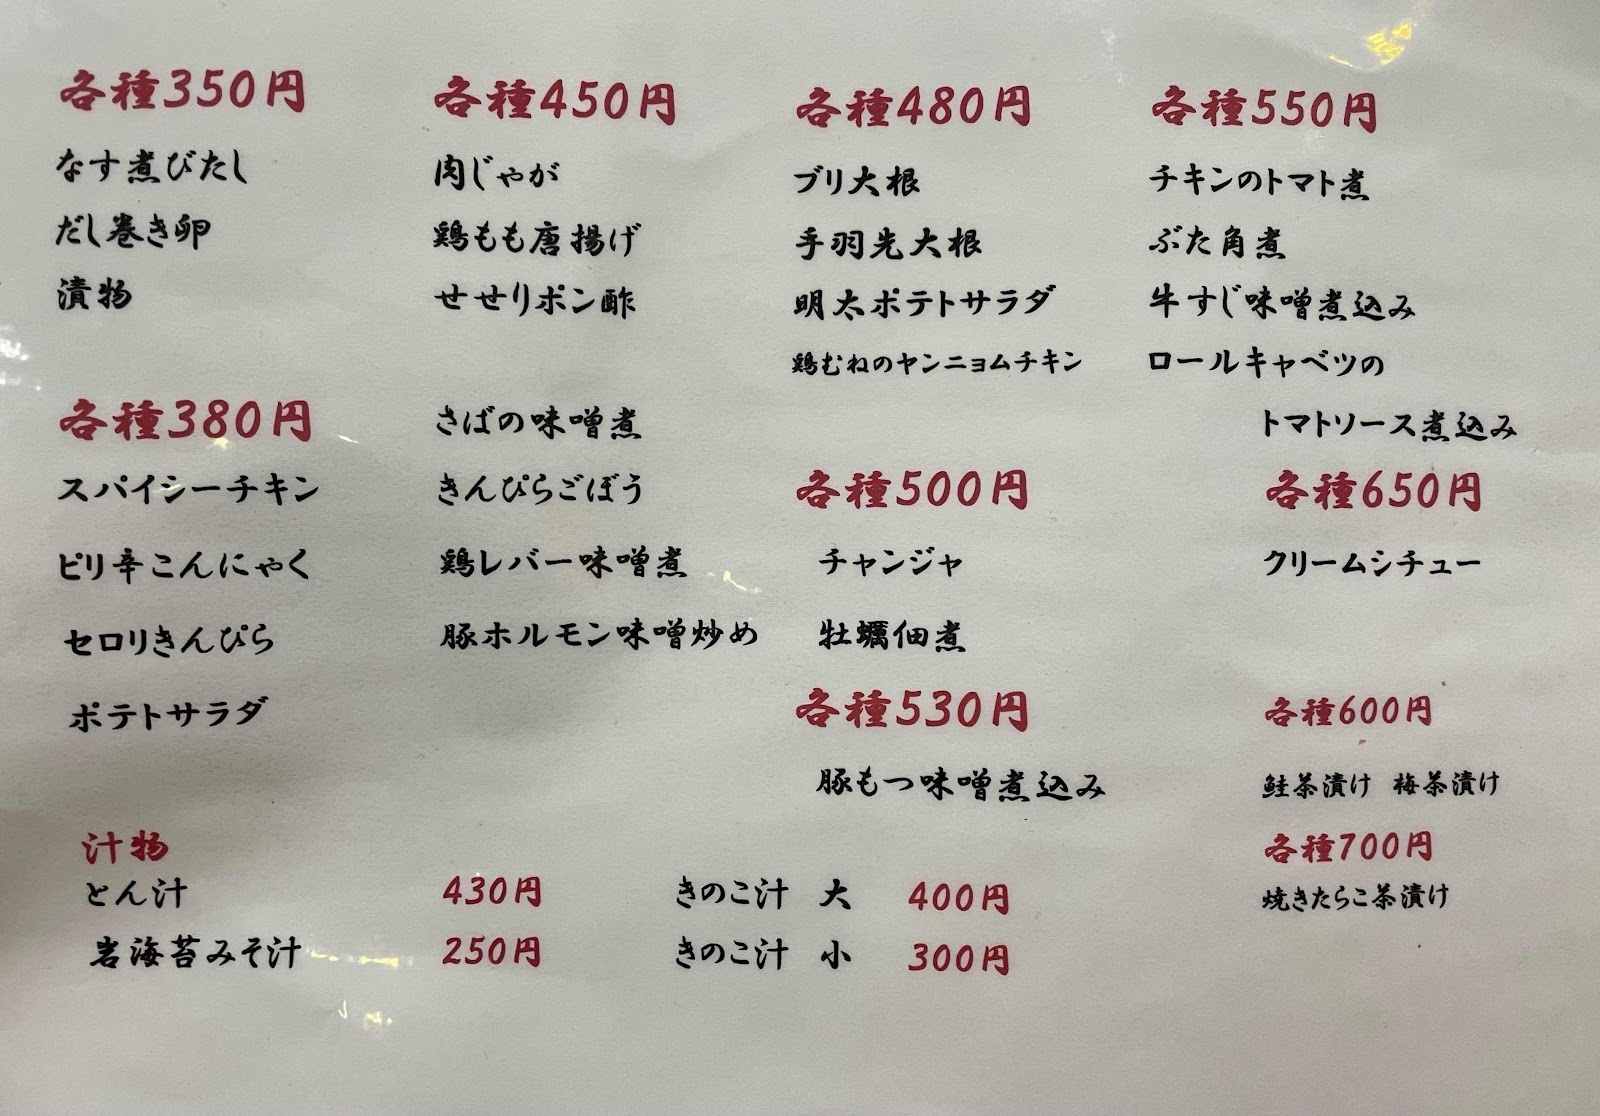 各種350円
なす煮びたし
だし巻き卵
漬物
各種380円
スパイシーチキン
ピリ辛こんにゃく
セロリきんぴら
ポテトサラダ
各種450円
肉じゃが
鶏もも唐揚げ
せせりポン酢
さばの味噌煮
きんぴらごぼう
鶏レバー味噌煮
豚ホルモン味噌炒め
各種480円
ブリ大根
手羽先大根
明太ポテトサラダ
鶏むねのヤンニョムチキン
各種500円
チャンジャ
牡蠣佃煮
各種530円
豚もつ味噌煮込み
各種550円
チキンのトマト煮
ぶた角煮
牛すじ味噌煮込み
ロールキャベツの
トマトソース煮込み
各種650円
クリームシチュー
各種600円
鮭茶漬け 梅茶漬け
各種700円
焼きたらこ茶漬け
汁物
とん汁 430円 きのこ汁 大 400円
岩海苔みそ汁 250円 きのこ汁 小 300円